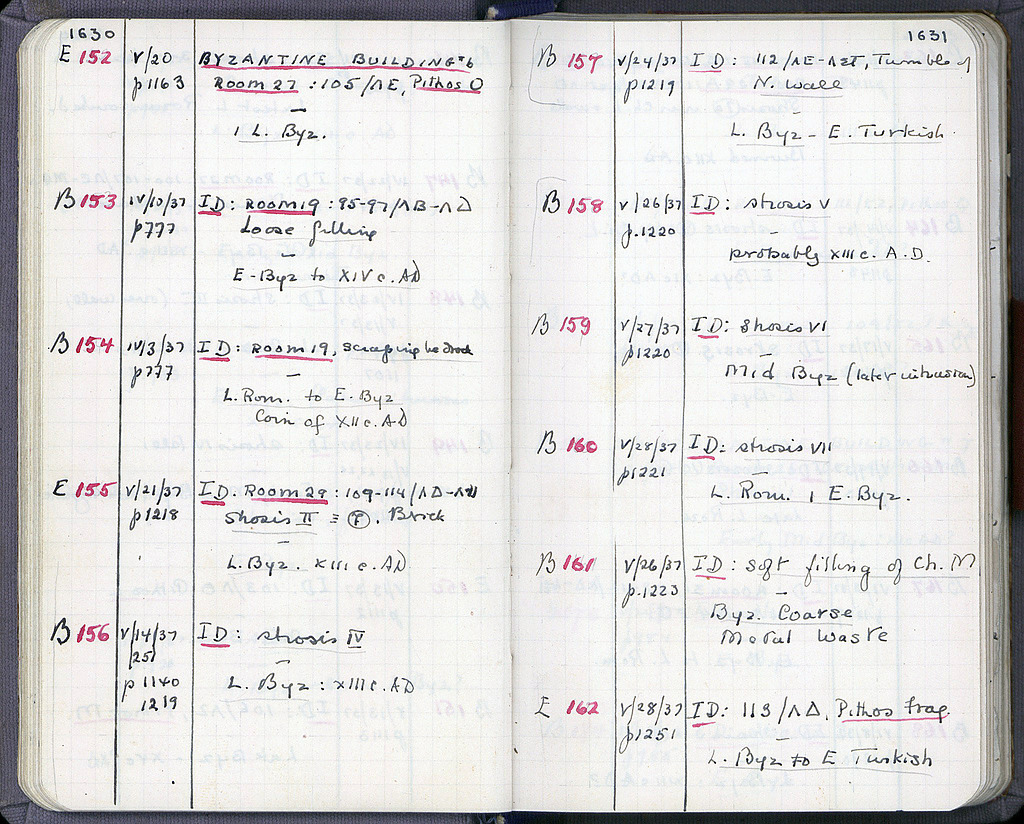 1630
E 152 V/20 BYZANTINE BUILDING #6
p1163 Room 27 : 105/ΛE, Pithos O
—
1 L. Byz.
B 153 IV/10/37 ID: Room 19 : 95-97/ΛB-ΛΔ
p777 Loose filling
—
E-Byz to XIV c. AD
B 154 IV/3/37 ID: Room 19, scraping
p777
—
L. Rom. to E. Byz
Coin of XII c. AD
E 155 V/21/37 ID. Room 29 : 109-114/ΛD-
p1218 Strosis II ≡ Ⓕ. Brick
—
L. Byz. XIII c. AD
B 156 V/14/37 ID: strosis IV
/25/
—
p1140 L. Byz : XIII c. AD
1219
1631
B 157 V/24/37 ID: 112/ΛE-ΛΣΤ, Tumble of
p1219 N. wall
—
L. Byz - E. Turkish.
B 158 V/26/37 ID: strosis V
p.1220
—
probably XIII c. A.D.
B 159 V/27/37 ID: strosis VI
p1220
—
Mid Byz (later intrusion)
B 160 V/28/37 ID: strosis VII
p1221
—
L. Rom. 1 E. Byz.
B 161 V/26/37 ID: soft filling of Ch. M
p.1223
—
Byz. Coarse
Metal waste
E 162 V/28/37 ID: 113/ΛΔ. Pithos frag.
p1251
—
L. Byz to E Turkish